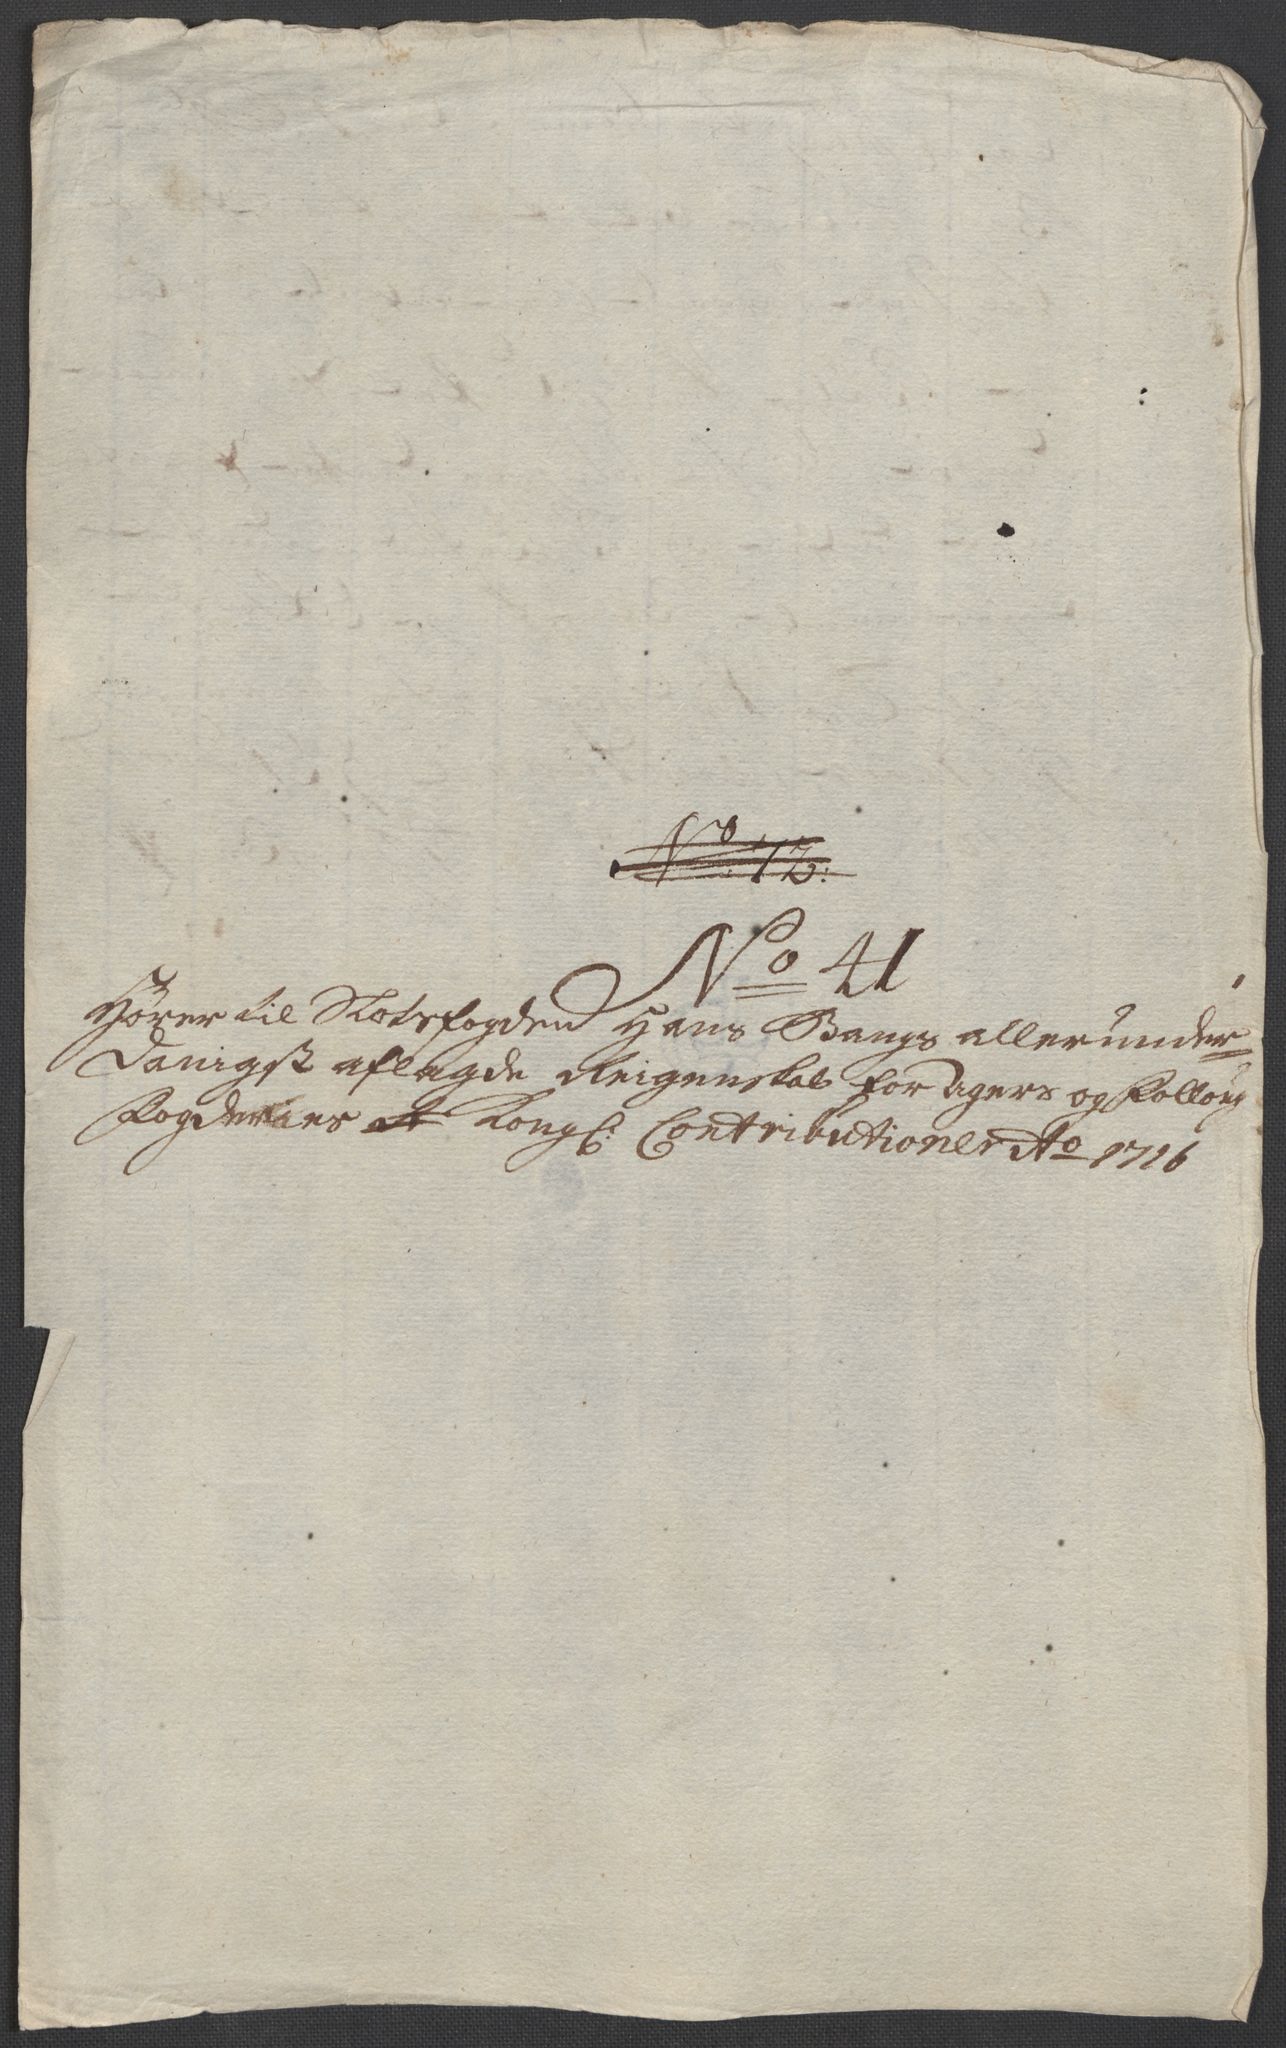 No: 12:
No 41
Hörer til Slotsfogden Hans Bangs allerunder=
danigst aflagde Reigenskab for Agers og Follow
Fogderies Kongl: Contributioner Ao 1716